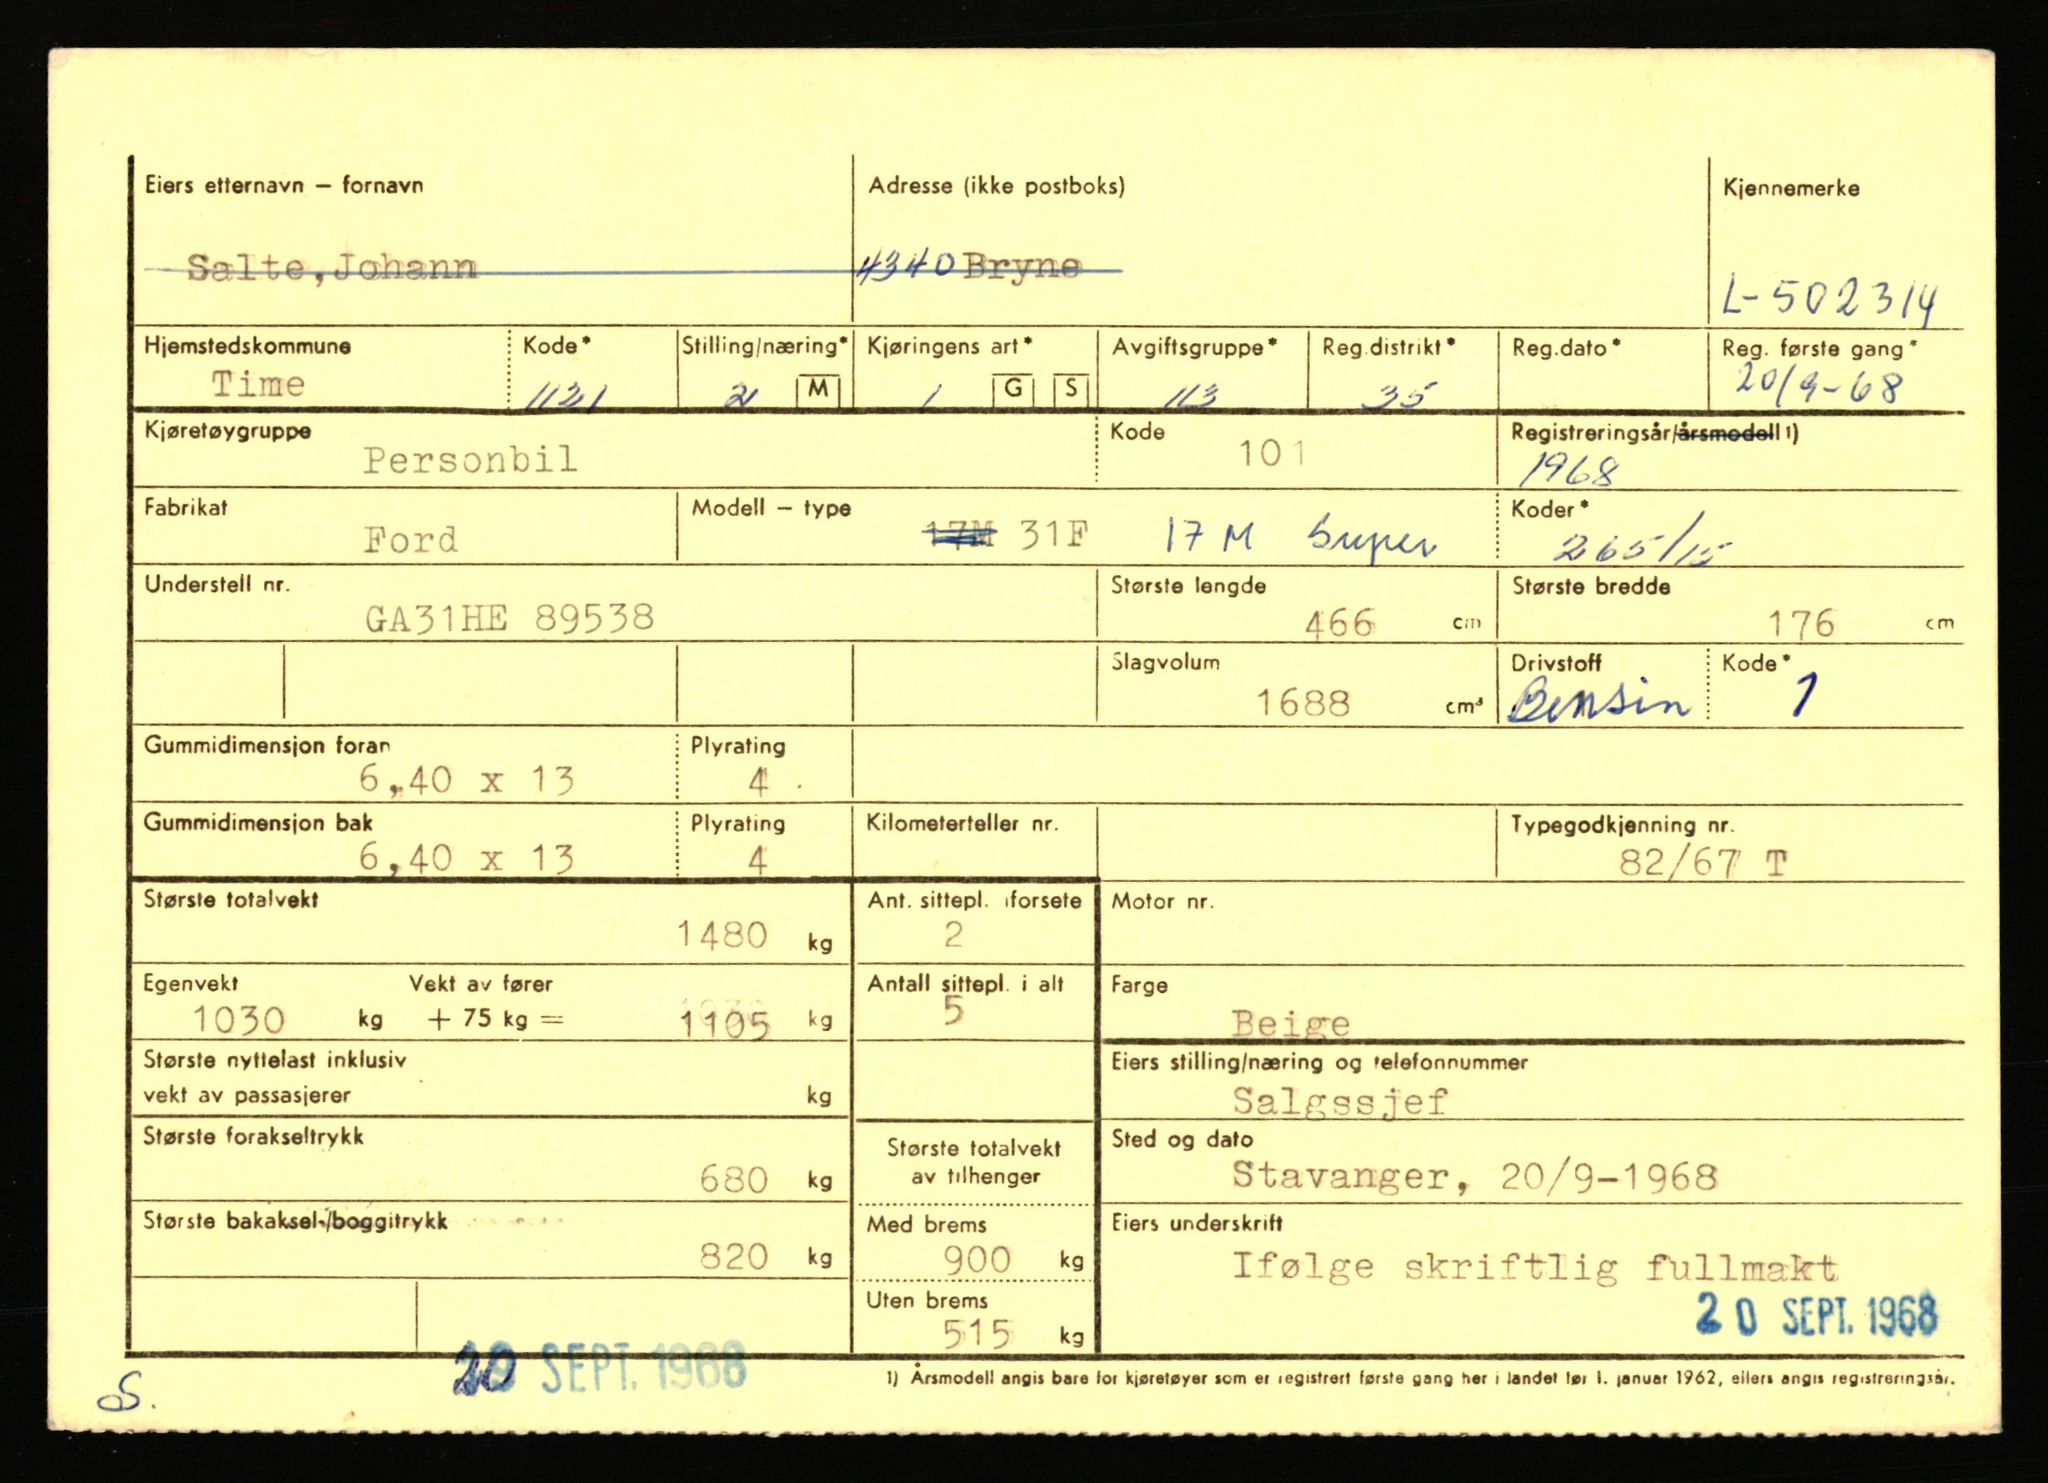 Eiers etternavn – fornavn Adresse (ikke postboks) Kjennemerke
Salte, Johann 4340 Bryne
L-502314
Hjemstedskommune Kode* Stilling/næring* Kjøringens art* Avgiftsgruppe* Reg.distrikt* Reg.dato* Reg. første gang*
Time 1121 2 M 1 G S 113 35 20/9-68
Kjøretøygruppe Kode Registreringsår/årsmodell 1)
Personbil 101 1968
Fabrikat Modell – type Koder*
Ford 17M 31F 17 M Super 265/15
Understell nr. Største lengde Største bredde
GA31HE 89538 466 cm 176 cm
Slagvolum Drivstoff Kode*
1688 cm³ Bensin 1
Gummidimensjon foran Plyrating
6,40 x 13 4
Gummidimensjon bak Plyrating Kilometerteller nr. Typegodkjenning nr.
6,40 x 13 4 82/67 T
Største totalvekt Ant. sittepl. i forsete Motor nr.
1480 kg 2
Egenvekt Vekt av fører Antall sittepl. i alt Farge
1030 kg + 75 kg = 1105 kg 5 Beige
Største nyttelast inklusiv Eiers stilling/næring og telefonnummer
vekt av passasjerer kg Salgssjef
Største forakseltrykk Største totalvekt Sted og dato
680 kg av tilhenger Stavanger, 20/9-1968
Største bakaksel-/boggitrykk Med brems Eiers underskrift
820 kg 900 kg Ifølge skriftlig fullmakt
Uten brems 20 SEPT. 1968
515 kg
20 SEPT. 1968
1) Årsmodell angis bare for kjøretøyer som er registrert første gang her i landet før 1. januar 1962, ellers angis registreringsår.
S.